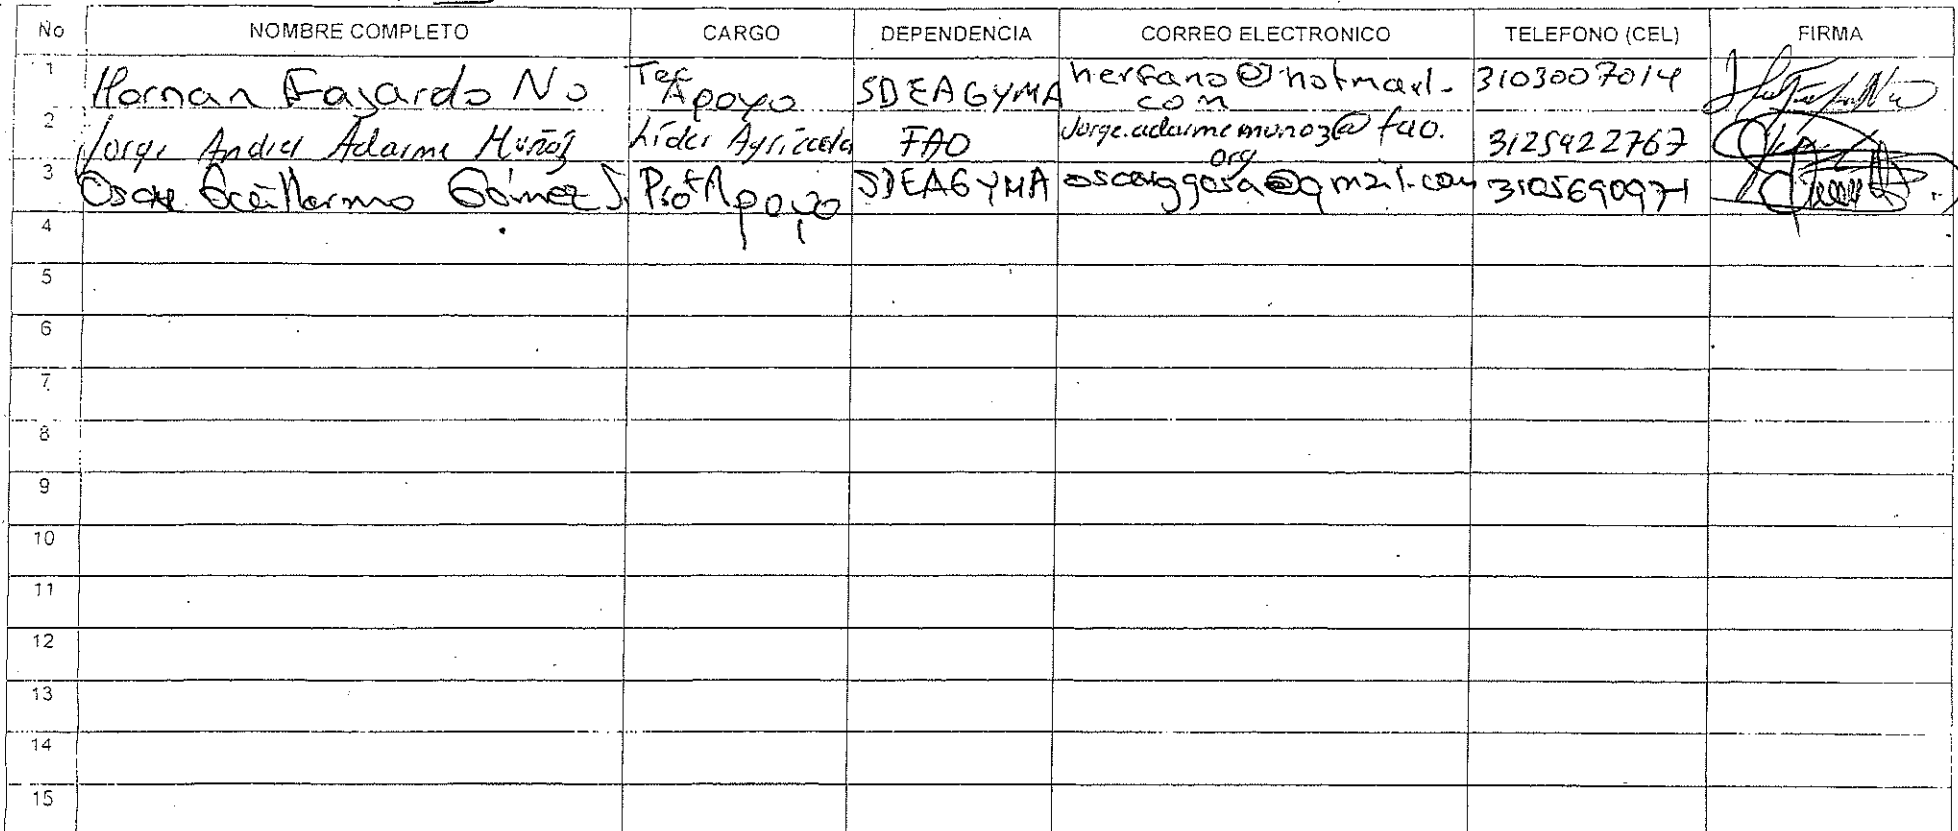 No NOMBRE COMPLETO CARGO DEPENDENCIA CORREO ELECTRONICO TELEFONO (CEL) FIRMA
1 Hernan Fajardo No Tec Apoyo SDEAGYMA herfano@hotmail.com 3103007014
2 Jorge Andres Adarme Muñoz Líder Agrícola FAO Jorge.adarmemunoz@fao.org 3125922767
3 Oscar Guillermo Gómez S. Prof Apoyo SDEAGYMA oscarggosa@gmail.com 3105690971
4
5
6
7
8
9
10
11
12
13
14
15